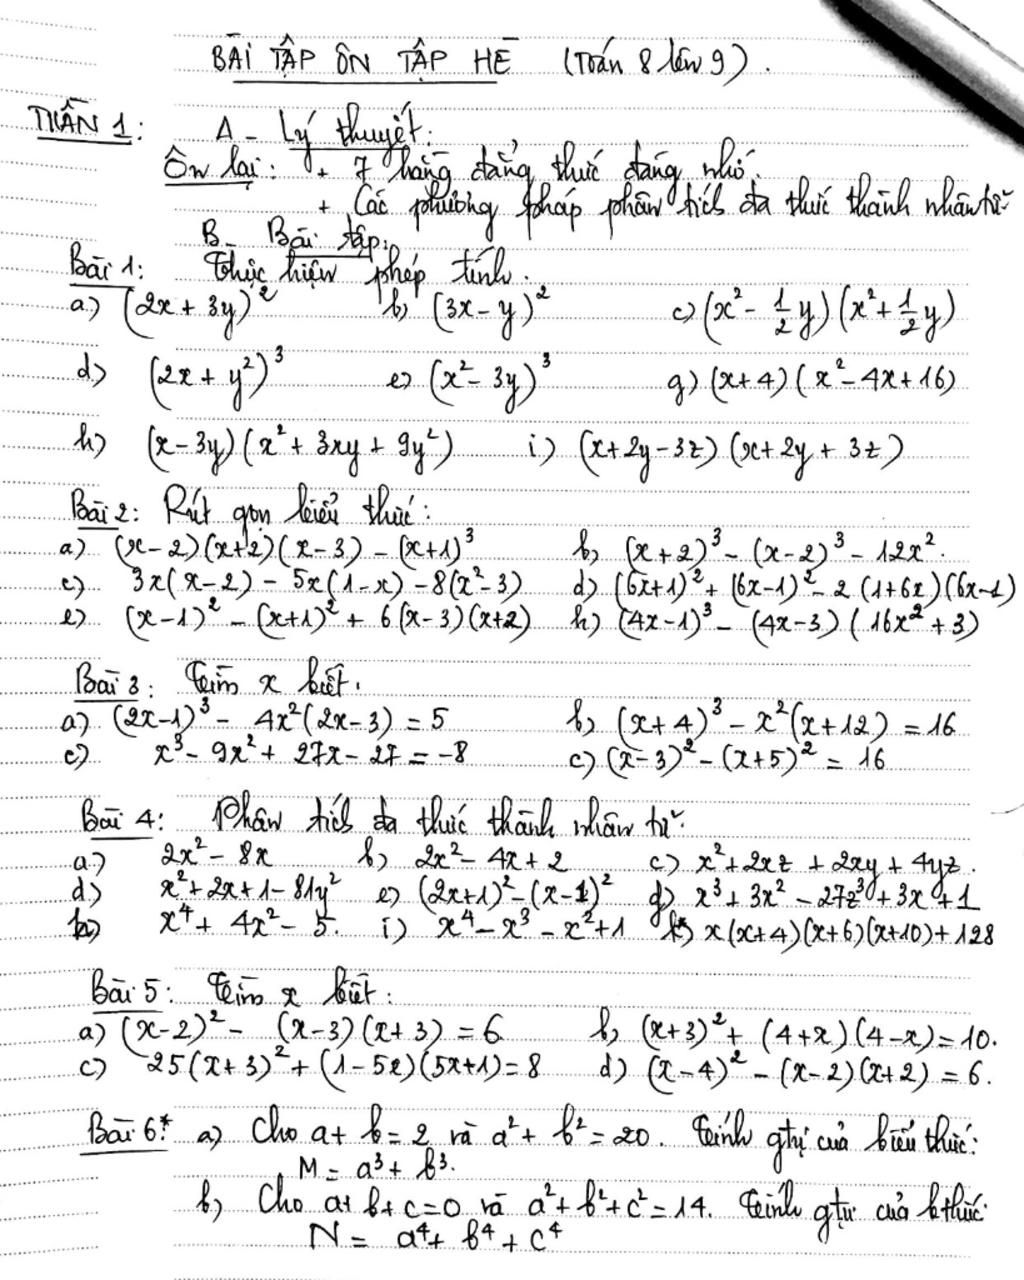 BÀI TẬP ÔN TẬP HÈ (Toán 8 lên 9).
TUẦN 1: A - Lý thuyết:
Ôn lại: + 7 hằng đẳng thức đáng nhớ.
+ Các phương pháp phân tích đa thức thành nhân tử
B - Bài tập:
Bài 1: Thực hiện phép tính.
a) (2x + 3y)² b) (3x - y)² c) (x² - 1/2 y)(x² + 1/2 y)
d) (2x + y²)³ e) (x² - 3y)³ g) (x+4)(x² - 4x + 16)
h) (x - 3y)(x² + 3xy + 9y²) i) (x + 2y - 3z)(x + 2y + 3z)
Bài 2: Rút gọn biểu thức:
a) (x-2)(x+2)(x-3) - (x+1)³ b) (x+2)³ - (x-2)³ - 12x².
c) 3x(x-2) - 5x(1-x) - 8(x²-3) d) (6x+1)² + (6x-1)² - 2(1+6x)(6x-1)
e) (x-1)² - (x+1)² + 6(x-3)(x+2) h) (4x-1)³ - (4x-3)(16x²+3)
Bài 3: Tìm x biết.
a) (2x-1)³ - 4x²(2x-3) = 5 b) (x+4)³ - x²(x+12) = 16
c) x³ - 9x² + 27x - 27 = -8 c) (x-3)² - (x+5)² = 16
Bài 4: Phân tích đa thức thành nhân tử.
a) 2x² - 8x b) 2x² - 4x + 2 c) x² + 2xz + 2xy + 4yz.
d) x² + 2x + 1 - 81y² e) (2x+1)² - (x-1)² g) x³ + 3x² - 27z³ + 3x + 1
h) x⁴ + 4x² - 5. i) x⁴ - x³ - x² + 1 k) x(x+4)(x+6)(x+10) + 128
Bài 5: Tìm x biết:
a) (x-2)² - (x-3)(x+3) = 6 b) (x+3)² + (4+x)(4-x) = 10.
c) 25(x+3)² + (1-5x)(5x+1) = 8 d) (x-4)² - (x-2)(x+2) = 6.
Bài 6*: a) Cho a + b = 2 và a² + b² = 20. Tính gtrị của biểu thức:
M = a³ + b³.
b) Cho a + b + c = 0 và a² + b² + c² = 14. Tính gtrị của bthức:
N = a⁴ + b⁴ + c⁴